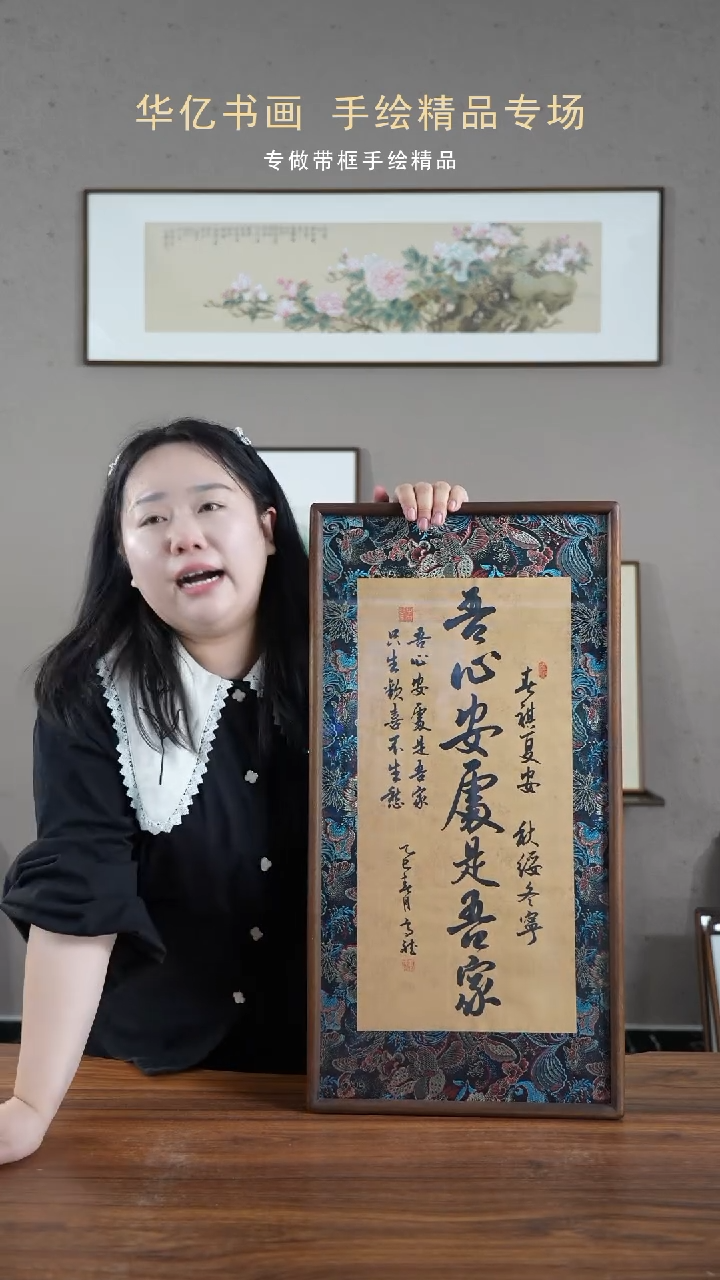 华亿书画 手绘精品专场
专做带框手绘精品
春祺夏安 秋綏冬寧
吾心安處是吾家
吾心安處是吾家
只生歡喜不生愁
乙巳春月